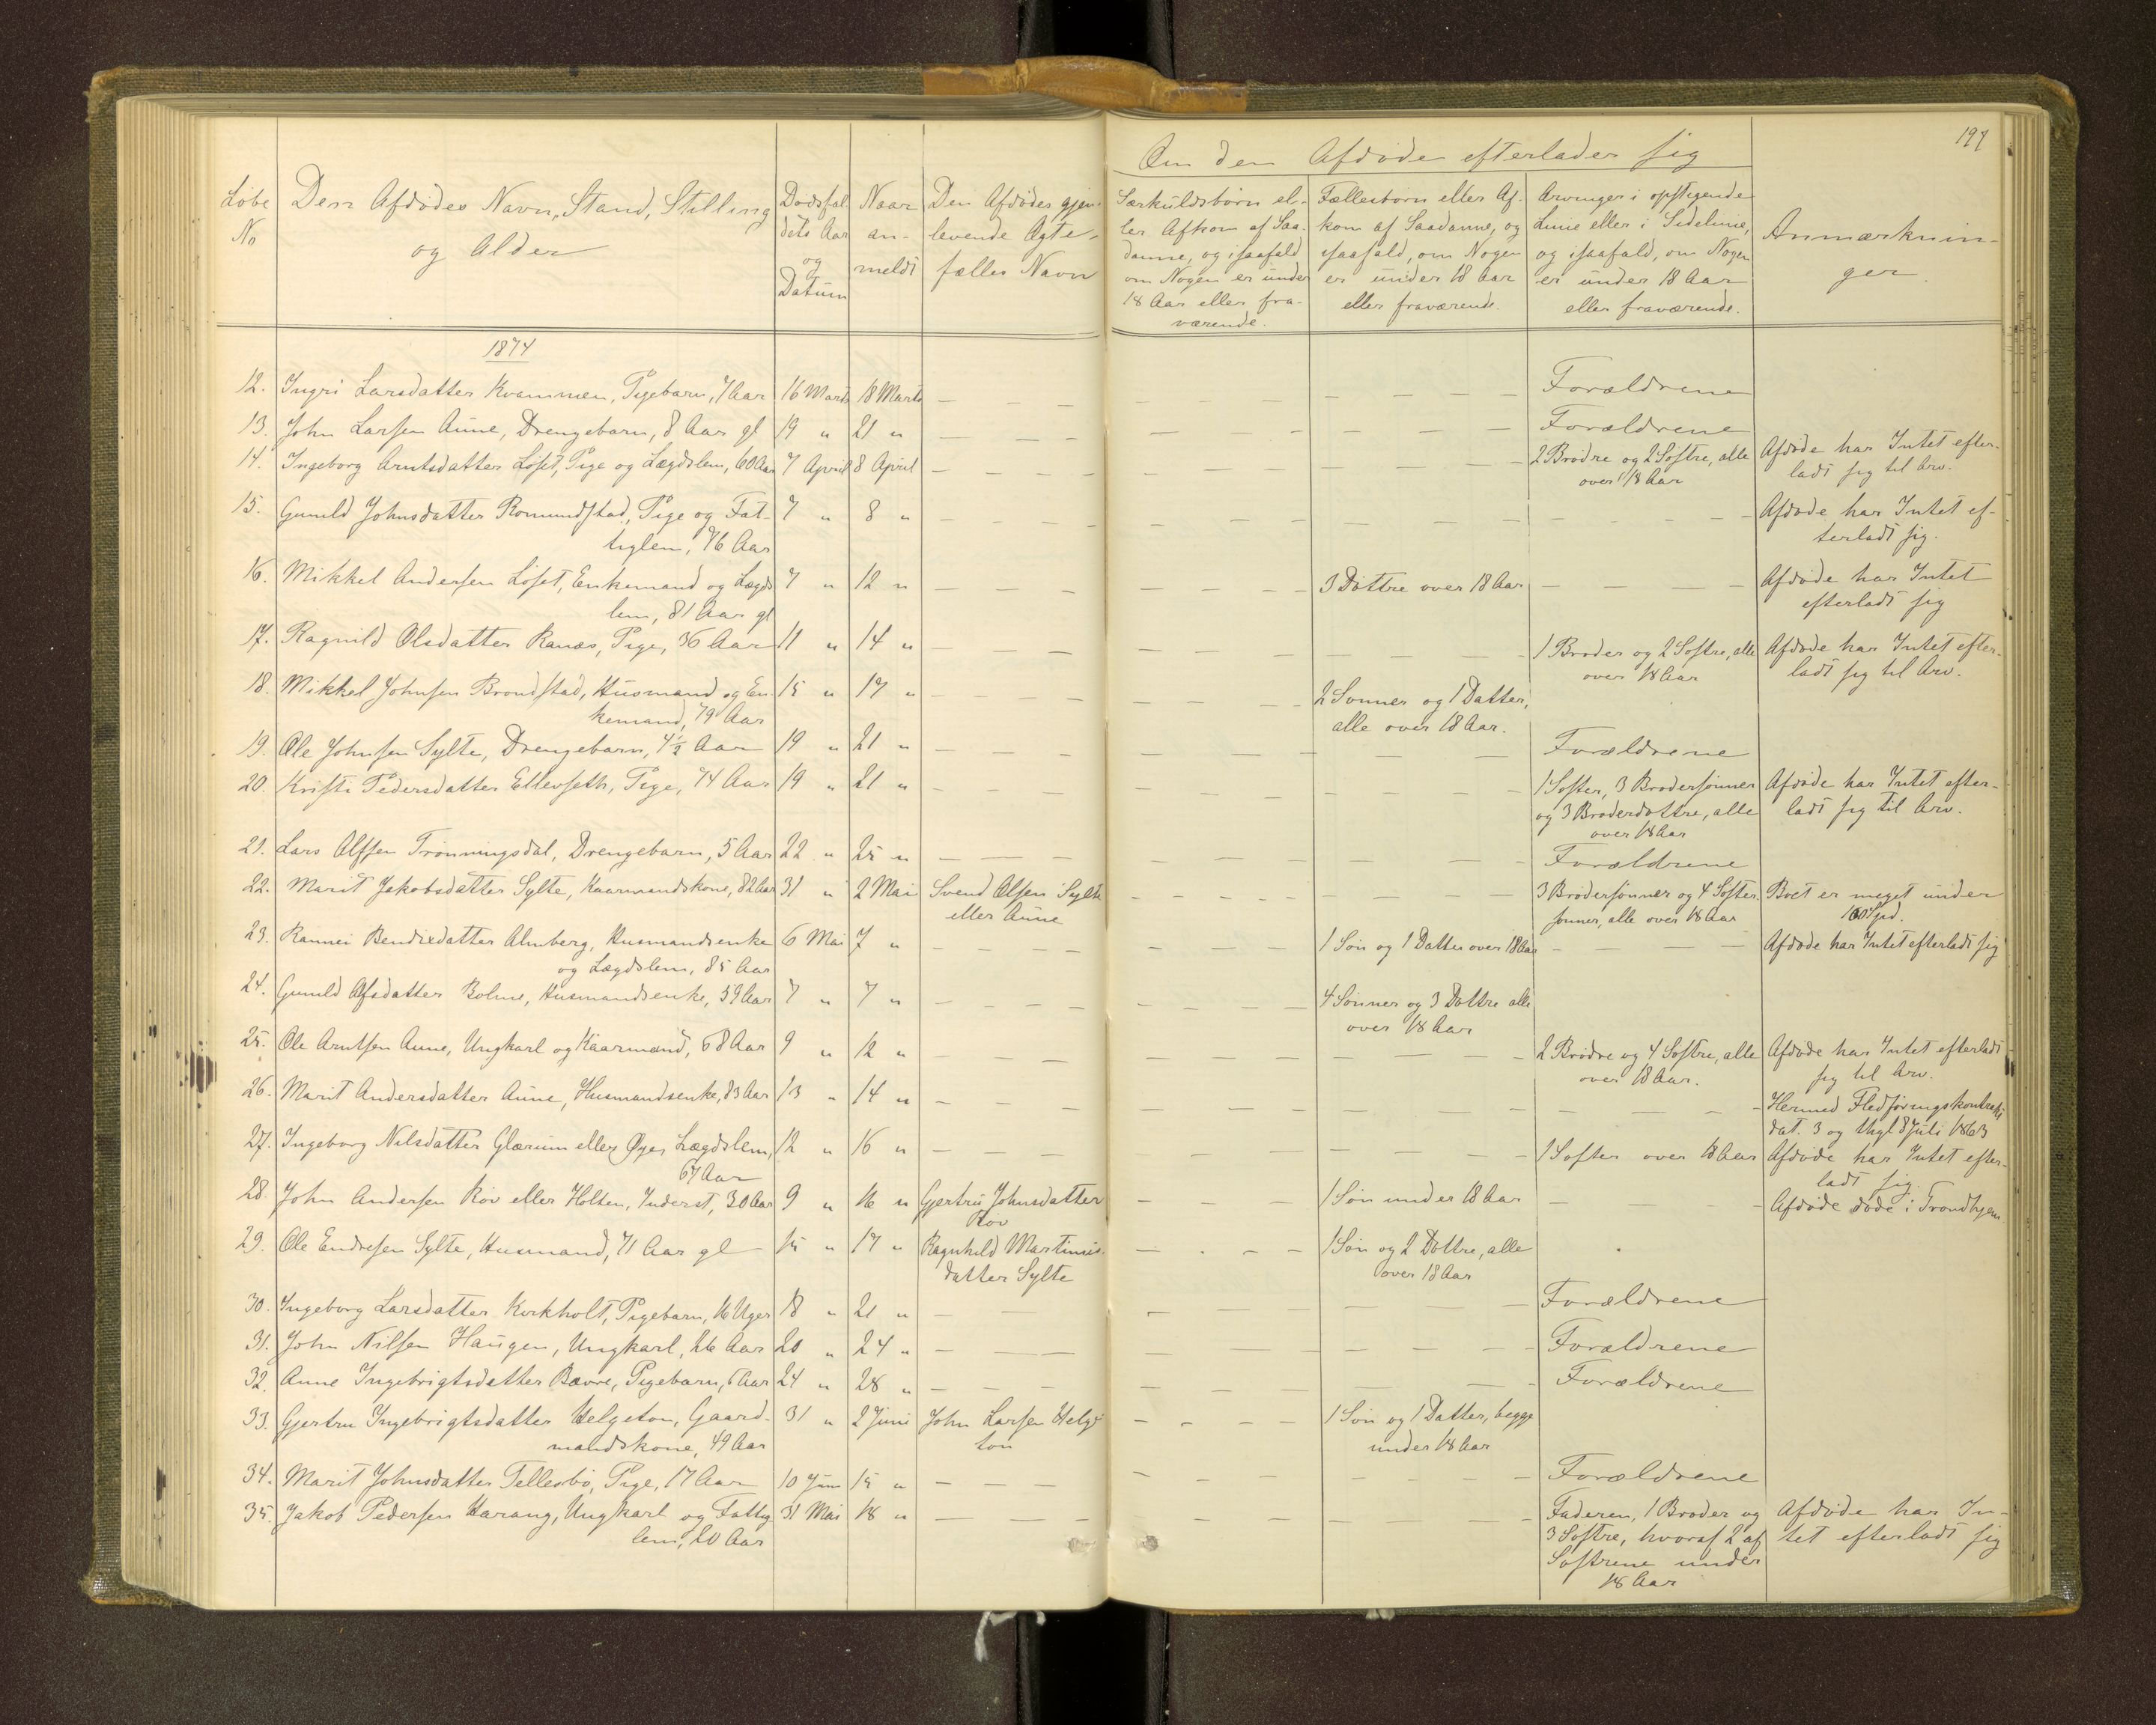 197
Om den Afdøde efterlader sig
Løbe No
Den Afdødes Navn, Stand, Stilling og Alder
Dødsfal-
dets Aar
og
Datum
Naar
an-
meldt
Den Afdødes gjen-
levende Ægte-
fælles Navn
Særkuldsbørn el-
ler Afkom af Saa-
danne, og isaafald
om Nogen er under
18 Aar eller fra-
værende.
Fællesbørn eller Af-
kom af Saadanne, og
isaafald, om Nogen
er under 18 Aar
eller fraværende.
Arvinger i opstigende
Linie eller i Sidelinie,
og isaafald, om Nogen
er under 18 Aar
eller fraværende.
Anmærknin-
ger
1874
12. Ingri Larsdatter Kvammen, Pigebarn, 7 Aar 16 Marts 18 Marts — Forældrene
13. John Larsen Aune, Drengebarn, 8 Aar gl 19 " 21 " — Forældrene
14. Ingeborg Arntsdatter Løset, Pige og Lægdslem, 60 Aar 7 April 8 April — 2 Brødre og 2 Søstre, alle Afdøde har Intet efter-
over 18 Aar ladt sig til Arv.
15. Gunild Johnsdatter Romundstad, Pige og Fat- 7 " 8 " — Afdøde har Intet ef-
tiglem, 76 Aar terladt sig.
16. Mikkel Andersen Løset, Enkemand og Lægds 7 " 12 " — 3 Døttre over 18 Aar — Afdøde har Intet
lem, 81 Aar gl efterladt sig
17. Ragnild Olsdatter Ranæs, Pige, 36 Aar 11 " 14 " — 1 Broder og 2 Søstre, alle Afdøde har Intet efter-
over 18 Aar ladt sig til Arv.
18. Mikkel Johnsen Brøndstad, Husmand og En 15 " 17 " — 2 Sønner og 1 Datter,
kemand, 79 Aar alle over 18 Aar.
19. Ole Johnsen Sylte, Drengebarn, 4 1/2 Aar 19 " 21 " — Forældrene
20. Kristi Pedersdatter Ellevseth, Pige, 74 Aar 19 " 21 " — 1 Søster, 3 Brodersønner Afdøde har Intet efter-
og 3 Broderdøttre, alle ladt sig til Arv.
over 18 Aar
21. Lars Olssen Trønningsdal, Drengebarn, 5 Aar 22 " 25 " — Forældrene
22. Marit Jakobsdatter Sylte, Kaarmandskone, 82 Aar 31 " 2 Mai Svend Olsen Sylte — 3 Brodersønner og 4 Søster- Boet er meget under
eller Aune sønner, alle over 18 Aar 100 Spd.
23. Rannei Bendixdatter Almberg, Husmandsenke 6 Mai 7 " — 1 Søn og 1 Datter over 18 Aar — Afdøde har Intet efterladt sig
og Lægdslem, 85 Aar
24. Gunild Olsdatter Bolme, Husmandsenke, 59 Aar 7 " 7 " — 4 Sønner og 3 Døttre alle
over 18 Aar
25. Ole Arntsen Aune, Ungkarl og Kaarmand, 68 Aar 9 " 12 " — 2 Brødre og 4 Søstre, alle Afdøde har Intet efterladt
over 18 Aar. sig til Arv.
26. Marit Andersdatter Aune, Husmandsenke, 83 Aar 13 " 14 " — Hermed Fledføringskontrakt
dat. 3 og thgl 8 Juli 1863
27. Ingeborg Nilsdatter Glærum eller Øye, Lægdslem, 12 " 16 " — 1 Søster over 18 Aar Afdøde har Intet efter-
67 Aar ladt sig.
28. John Andersen Røv eller Holten, Inderst, 30 Aar 9 " 16 " Gjertru Johnsdatter — 1 Søn under 18 Aar — Afdøde døde i Trondhjem
Røv
29. Ole Endresen Sylte, Husmand, 71 Aar gl 15 " 17 " Ragnhild Martinus- — 1 Søn og 2 Døttre, alle
datter Sylte over 18 Aar
30. Ingeborg Larsdatter Korkholt, Pigebarn, 16 Uger 18 " 21 " — Forældrene
31. John Nilsen Haugen, Ungkarl, 26 Aar 20 " 24 " — Forældrene
32. Anne Ingebrigtsdatter Bævre, Pigebarn, 6 Aar 24 " 28 " — Forældrene
33. Gjertru Ingebrigtsdatter Helgeton, Gaard- 31 " 2 Juni John Larsen Helge — 1 Søn og 1 Datter, begge
mandskone, 49 Aar ton under 18 Aar
34. Marit Johnsdatter Tellesbø, Pige, 17 Aar 10 Juni 15 " — Forældrene
35. Jakob Pedersen Harang, Ungkarl og Fattig 31 Mai 18 " — Faderen, 1 Broder og Afdøde har In-
lem, 20 Aar 3 Søstre, hvoraf 2 af tet efterladt sig
Søstrene under
18 Aar